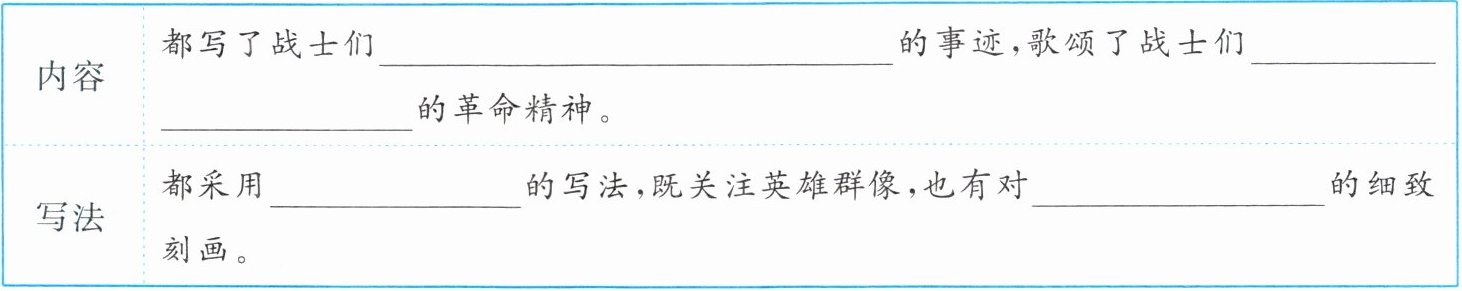 内容
都写了战士们______________________的事迹,歌颂了战士们________
___________的革命精神。
写法
都采用___________的写法,既关注英雄群像,也有对_____________的细致
刻画。